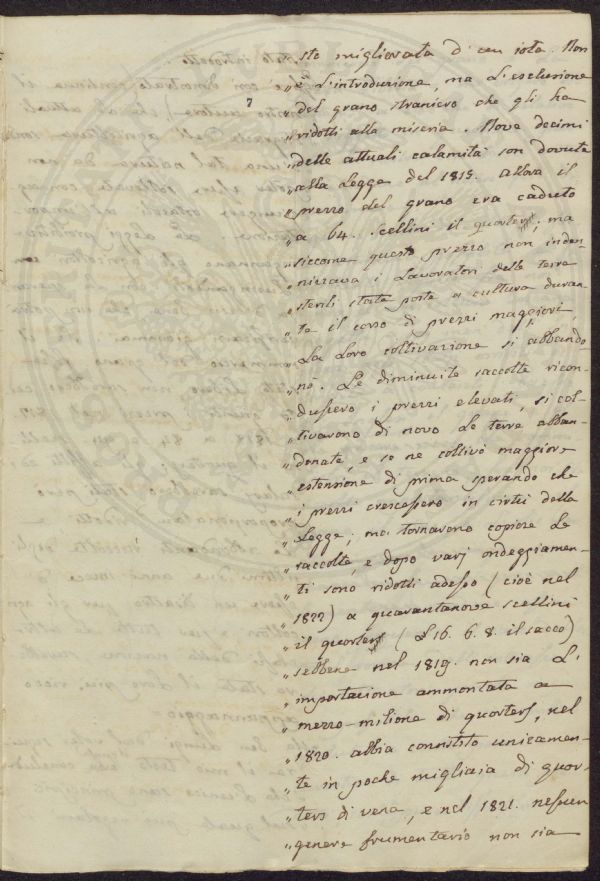 ste migliorata d'un iota. Non
„ è l'introduzione, ma l'esclusione
7
„ del grano straniero che gli ha
„ ridotti alla miseria. Nove decimi
„ delle attuali calamità son dovute
„ alla Legge del 1815. allora il
„ prezzo del grano era caduto
„ a 64. scellini il quorters; ma
„ siccome questo prezzo non inden-
„ nizzava i Lavoratori delle terre
„ sterili state poste a cultura duran-
„ te il corso di prezzi maggiori,
„ La Loro coltivazione si abbando
„ nò. Le diminuite raccolte ricon-
„ dussero i prezzi elevati, si col-
„ tivarono di novo Le terre abban-
„ donate, e se ne coltivò maggiore
„ estensione di prima sperando che
„ i prezzi crescessero in virtù della
„ Legge; ma tornarono copiose Le
„ raccolte, e dopo varj ondeggiamen-
„ ti sono ridotti adesso (cioè nel
„ 1822) a quarantanove scellini
„ il quorters (£ 16. 6. 8. il sacco)
„ sebbene nel 1819. non sia L'
„ importazione ammontata a
„ mezzo-milione di quorters, nel
„ 1820. abbia consistito unicamen-
„ te in poche migliaia di quor-
„ ters di vena, e nel 1821. nessun
„ genere frumentario non sia